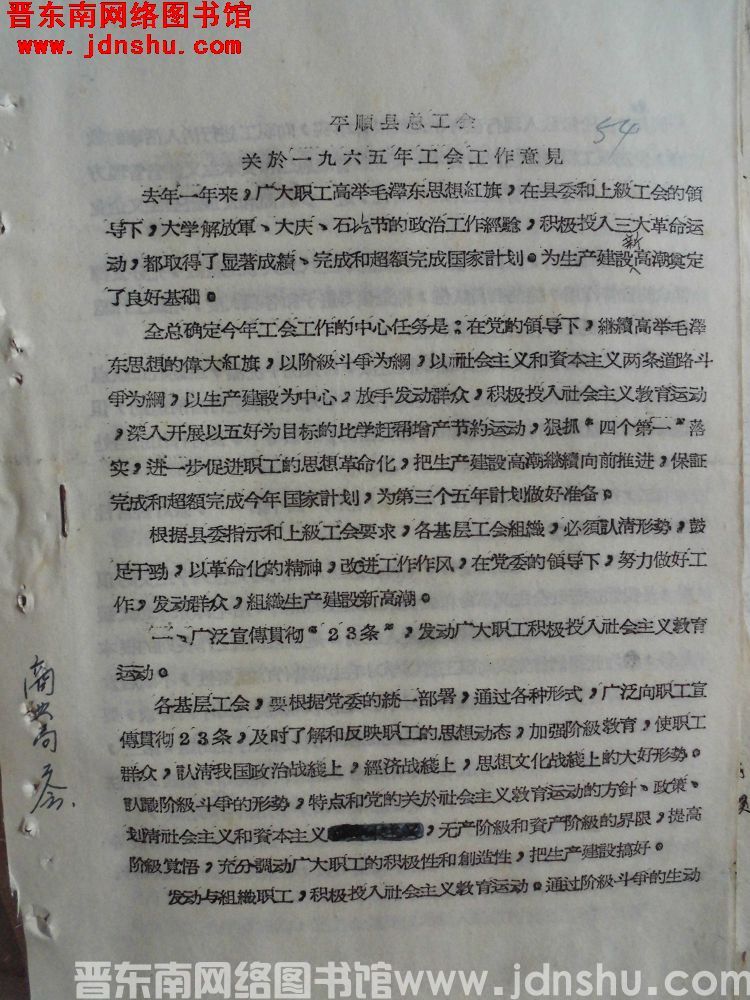 晋东南网络图书馆
www.jdnshu.com
平順县总工会
54
关於一九六五年工会工作意見
去年一年来，广大职工高举毛澤东思想紅旗，在县委和上級工会的領
导下，大学解放軍、大庆、石圪节的政治工作經驗，积极投入三大革命运
动，都取得了显著成績、完成和超額完成国家計划。为生产建設新高潮奠定
了良好基础。
全总确定今年工会工作的中心任务是：在党的領导下，継續高举毛澤
东思想的偉大紅旗，以阶級斗爭为綱，以社会主义和資本主义两条道路斗
爭为綱，以生产建設为中心，放手发动群众，积极投入社会主义教育运动
，深入开展以五好为目标的比学赶帮增产节約运动，狠抓“四个第一”落
实，进一步促进职工的思想革命化，把生产建設高潮継續向前推进，保証
完成和超額完成今年国家計划，为第三个五年計划做好准备。
根据县委指示和上級工会要求，各基层工会組織，必須認清形势，鼓
足干勁，以革命化的精神，改进工作作风，在党委的領导下，努力做好工
作，发动群众，組織生产建設新高潮。
一、广泛宣傳貫彻“23条”，发动广大职工积极投入社会主义教育
运动。
各基层工会，要根据党委的統一部署，通过各种形式，广泛向职工宣
傳貫彻23条，及时了解和反映职工的思想动态，加强阶級教育，使职工
群众，認清我国政治战綫上，經济战綫上，思想文化战綫上的大好形势。
認識阶級斗爭的形势，特点和党的关於社会主义教育运动的方針、政策、
划清社会主义和資本主义，无产阶級和資产阶級的界限，提高
阶級覚悟，充分調动广大职工的积极性和創造性，把生产建設搞好。
发动与組織职工，积极投入社会主义教育运动。通过阶級斗爭的生动
晋东南网络图书馆www.jdnshu.com